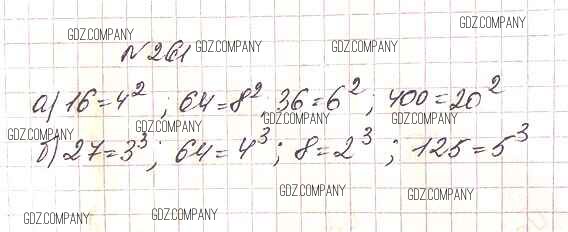 GDZ.COMPANY
GDZ.COMPANY GDZ.COMPANY GDZ.COMPANY
N261
а) 16=4²; 64=8²; 36=6²; 400=20²
GDZ.COMPANY GDZ.COMPANY GDZ.COMPANY GDZ.COMPANY
б) 27=3³; 64=4³; 8=2³; 125=5³
GDZ.COMPANY GDZ.COMPANY
GDZ.COMPANY GDZ.COMPANY GDZ.COMPANY